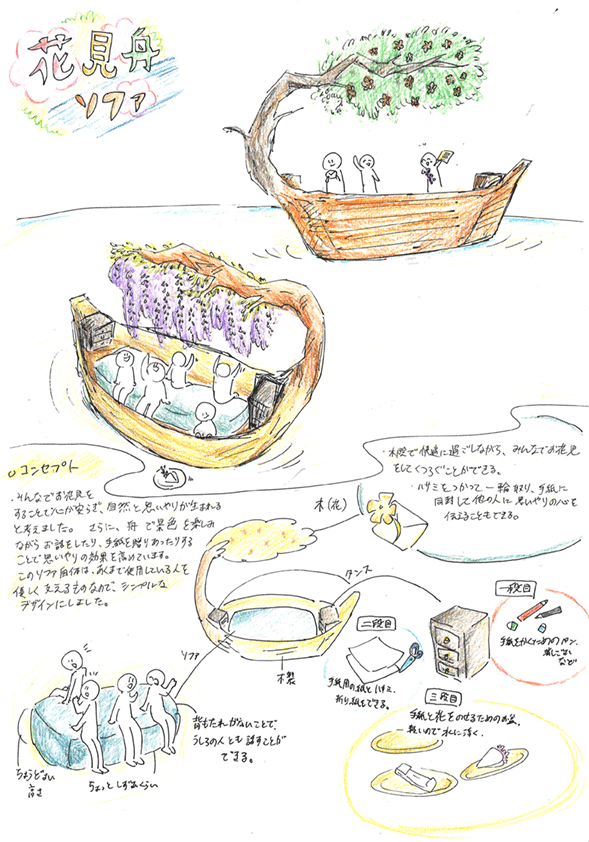 花見舟
ソファ
○コンセプト
・みんなでお花見を
することで心が安らぎ、自然と思いやりが生まれる
と考えました。さらに、舟で景色を楽しみ
ながらお話をしたり、手紙を贈りあったりする
ことで思いやりの効果を高めています。
このソファ自体は、あくまで使用している人を
優しく支えるものなので、シンプルな
デザインにしました。
・木陰で快適に過ごしながら、みんなでお花見
をしてくつろぐことができる。
・ハサミをつかって一輪切り、手紙に
同封して他の人に思いやりの心を
伝えることもできる。
木(花)
タンス
ソファ
木製
一段目
手紙をかくためのペン、
消しゴム
など
二段目
手紙用の紙とハサミ
折り紙もできる。
三段目
手紙と花をのせるためのお盆。
軽いので水に浮く。
背もたれがないことで、
うしろの人とも話すことが
できる。
ちょうどよい
高さ
ちょっとしずむくらい